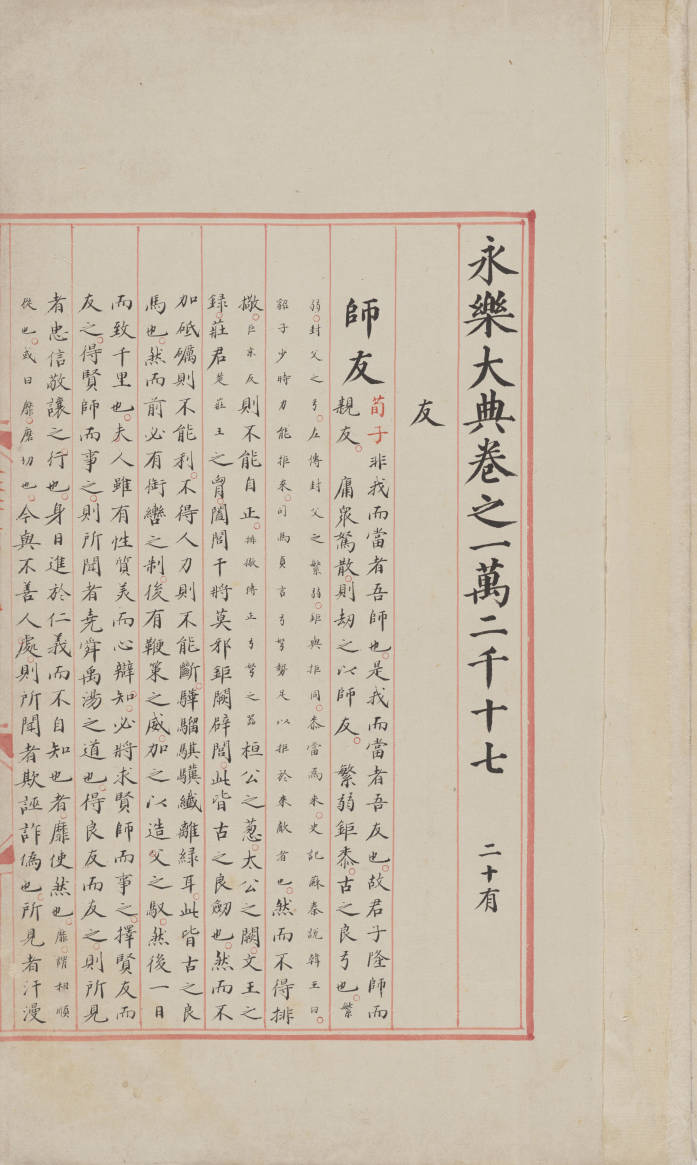 永樂大典卷之一萬二千十七 二十有
友
師友
荀子非我而當者吾師也。是我而當者吾友也。故君子隆師而
親友。 庸衆駑散。則劫之以師友。 繁弱鉅黍。古之良弓也。繁
弱。封父之弓。左傳封父之繁弱。鉅與拒同。黍當爲來。史記蘇秦說韓王曰。
谿子少時力能拒來。司馬貞言弓弩勢足以拒於來敵者也。然而不得排
㩩。巨京反則不能自正。排㩩傅正弓弩之器 桓公之蔥。太公之闕。文王之
録。莊君楚莊王之曶。闔閭干將莫邪鉅闕辟閭。此皆古之良劒也。然而不
加砥礪則不能利。不得人力則不能斷。驊騮騏驥纖離緑耳。此皆古之良
馬也。然而前必有銜轡之制。後有鞭策之威。加之以造父之馭。然後一日
而致千里也。夫人雖有性質美而心辯知。必將求賢師而事之。擇賢友而
友之。得賢師而事之。則所聞者堯舜禹湯之道也。得良友而友之。則所見
者忠信敬讓之行也。身日進於仁義而不自知也者。靡使然也。靡。謂相順
從也。或曰靡。磨切也。今與不善人處。則所聞者欺誣詐僞也。所見者汙漫